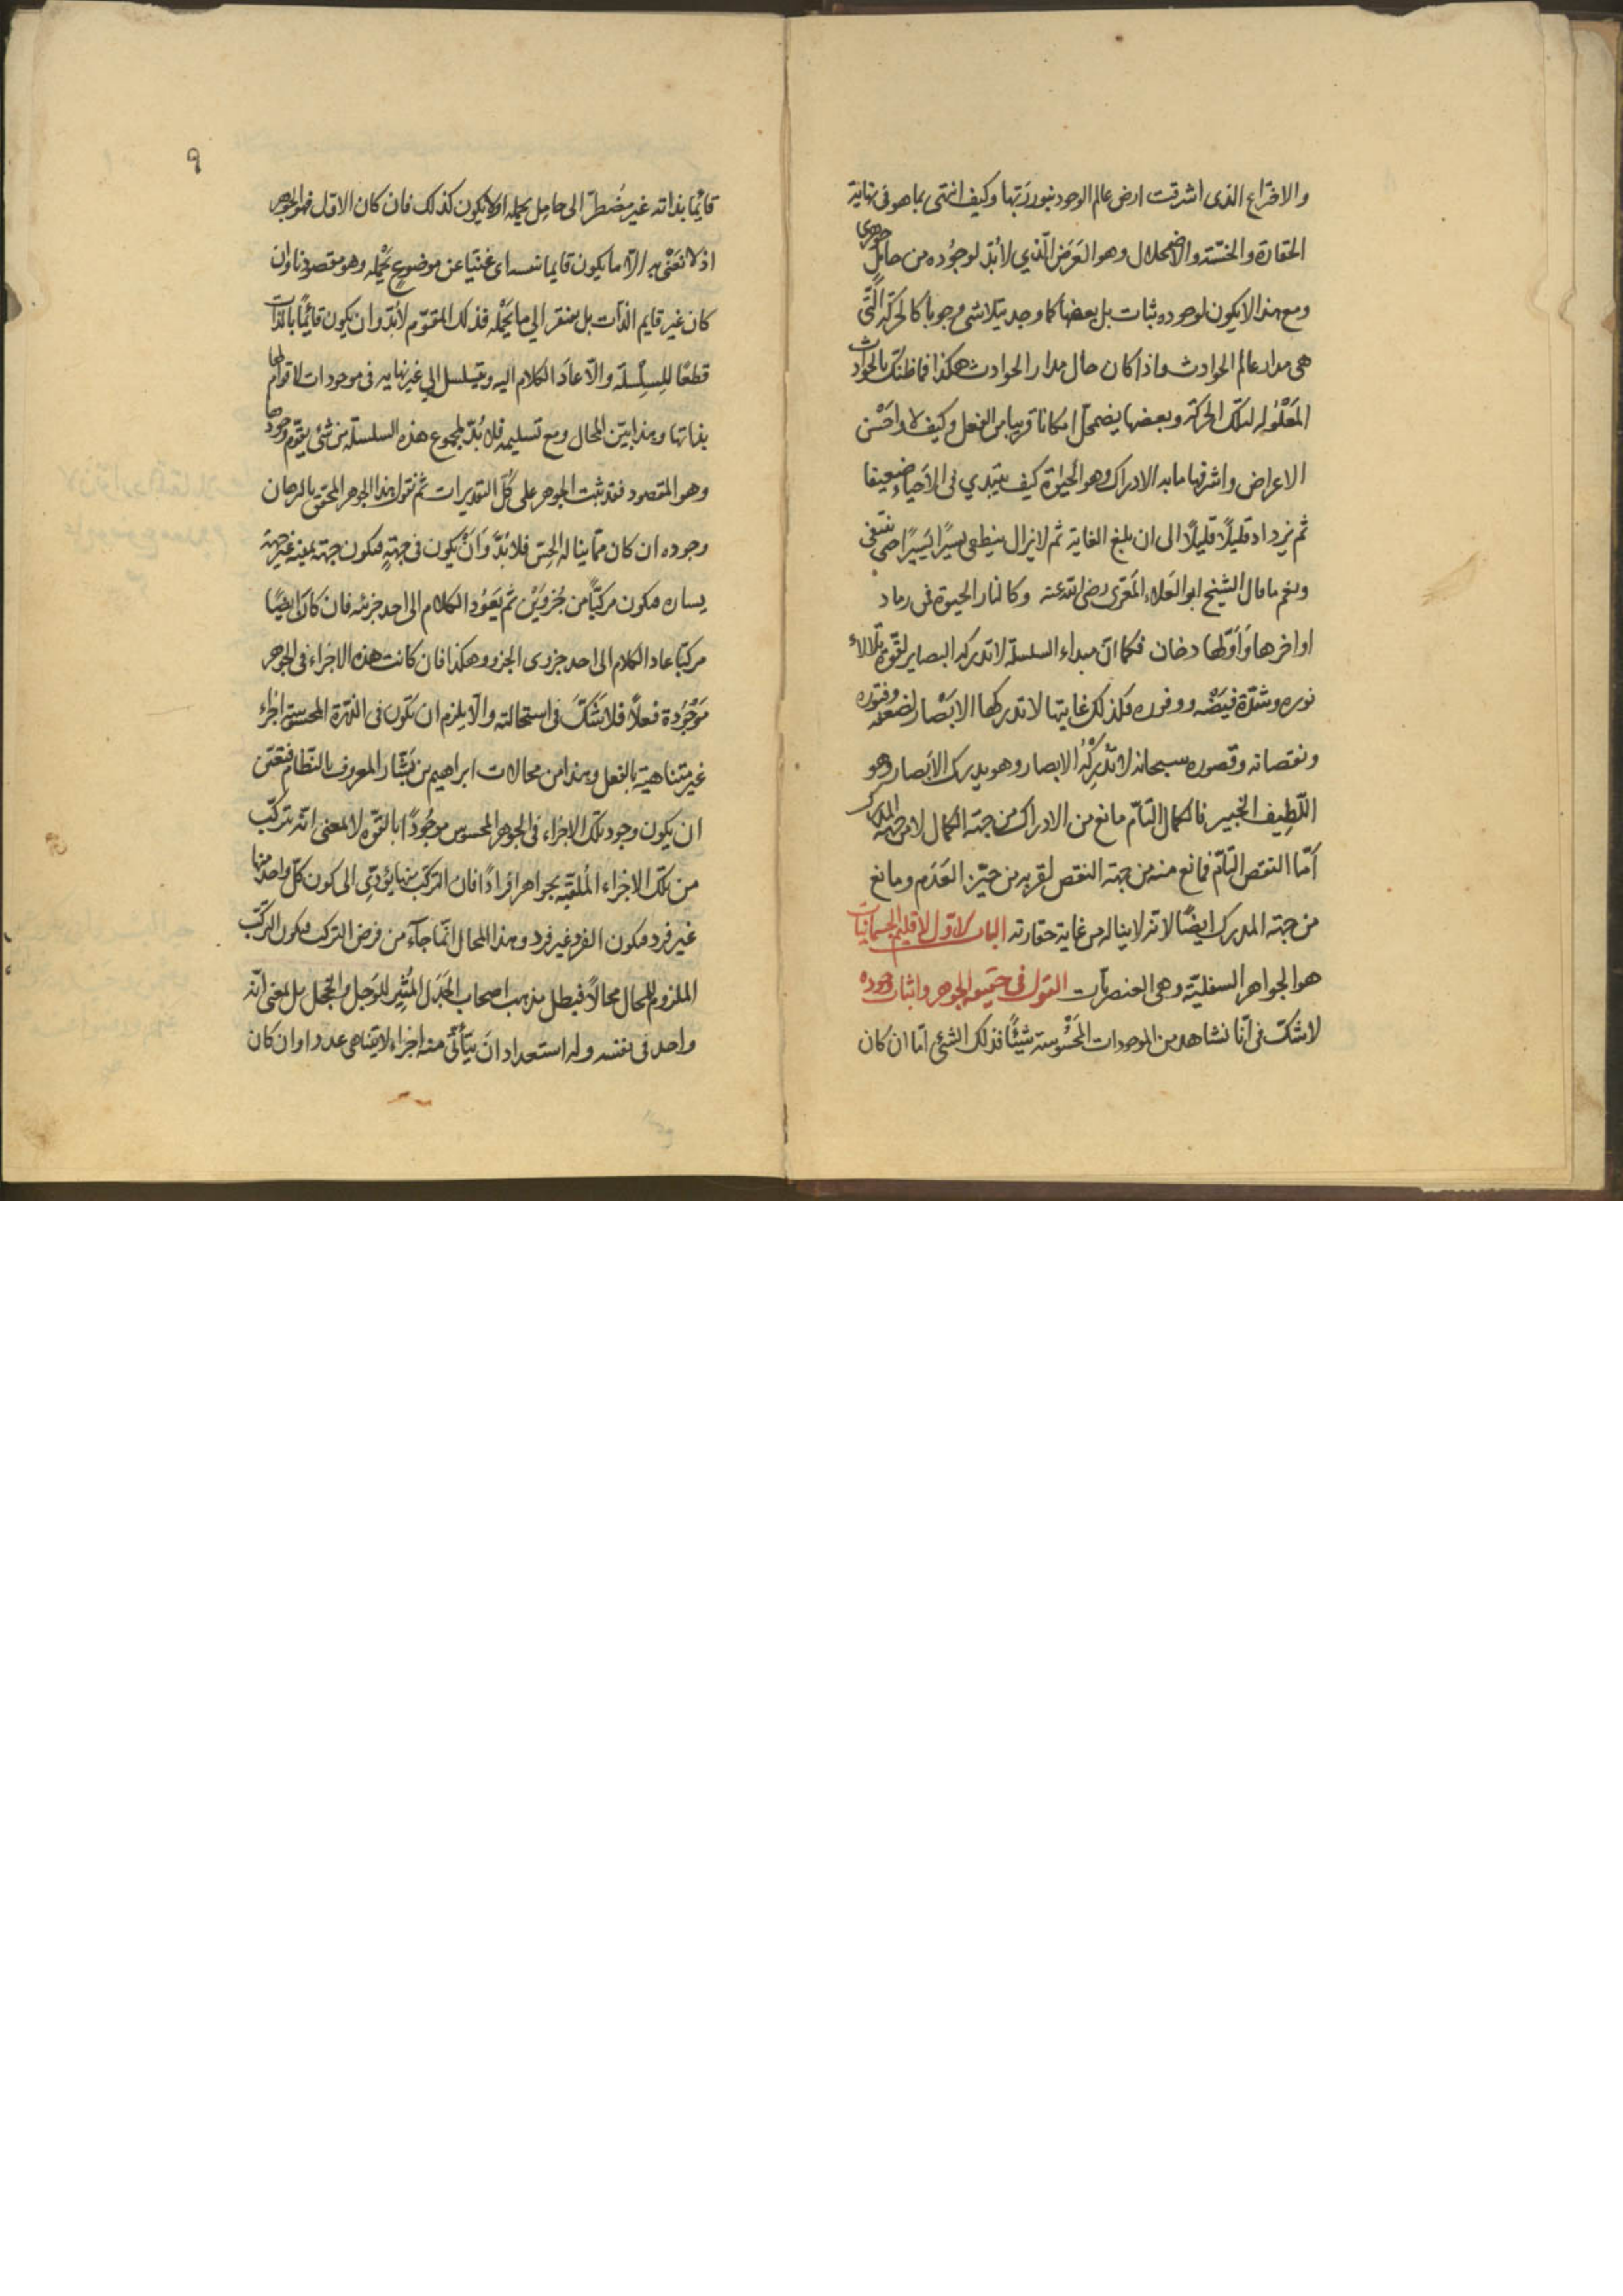 والاختراع الذى اشرقت ارض عالم الوجود بنور ربّها وكيف انتهى بما هو فى نهاية
الحقارة والخسّة والاضمحلال وهو العَرَض الّذي لابُدّ لوجُوده من حامِلٍ جوهرى
ومع هذا لا يكون لوجوده ثبات بل بعضها كما وجد يتلاشى وجوبا كالحركة الَّتى
هى مدار عالم الحوادث واذا كان حال مدار الحوادث هكذا فما ظنّك بالحوادث
المَعْلُوله لتلك الحركة وبعضها يضمحلّ امكانا قريبا من الفعل وكيف لا واحَسْن
الاعراض واشرفها ما به الادراك وهو الحَيٰوة كيف يبتدي فى الاَحياء ضعيفا
ثم يزداد قليلًا قليلًا الى ان بلغ الغاية ثم لا يزال ينطفى يسيًرا يَسيًرا حتى ينتفى
ونعم ما قال الشيخ ابو العَلاء المَعَرّى رضى الله عنه وكالنار الحيوة فمن رماد
اواخرها وَاَوّلها دخان فكما انّ مبداء السلسلة لا تدركه البصاير لقوّة تلالاء
نوره وشدّة فيضَه ووفوره فكذلك غايتها لا تدركها الابصَار لضعفه وفتوره
ونقصانه وقصوره سبحانه لا تُدرِكُهُ الابصار وهو يدرك الابَصار وهو
اللّطِيف الخبير فالكمال التّامّ مانع من الادراك من جهة الكمال لا من جهة المدرك
اَمّا النقص التّامّ فمانع منه من جهة النقص لقربه من حيّز العَدَم ومانع
من جهة المدرك ايضًا لانّه لا يناله من غاية حقارته الباب الاوّل لاقليم الجسمانيات
هو الجواهر السفليّة وهى العنصريّات القول فى حقيقة الجوهر واثبات وجوده
لا شكّ فى انّا نشاهد من الموجودات المَحْسُوسة شَيئًا فذلك الشئ امّا ان كان
٩
قايمًا بذاته غير مضُطرّ الى حامِل يحمله او لا يكون كذلك فان كان الاوّل فهو الجوهر
اذ لا نَعْنى به الّا ما يكون قايما بنفسه اى غنيّا عن موضوع يَحْمله وهو مقصودنا وان
كان غير قايم الذّات بل مفتقر الي ما يَحْمله فذلك المقوّم لابُدّ وان يكون قائمًا بالذّات
قطعًا للِسلِسلة والّا عادَ الكلام اليه ويتسلسل الي غير نهايه فى موجودات لا قوام لها
بذاتها وهذا بيّن المحال ومع تسليمه فلا بُدّ لمجموع هذه السلسلة من شئ يقوّم وجودها
وهو المقصود فقد ثبت الجوهر على كُلّ التقديرات ثمّ نقول هذا الجوهر المحقّق بالبرهان
وجوده ان كان ممّا يناله الحِسّ فلا بُدّ وَاَنْ يكون فى جهةٍ فيكون جهة يمينه غير جهة
يساره فيكون مركبّاً من جُزوَيْن ثم يَعَوُد الكلام الى احد جزئيه فان كان ايضًا
مركبّا عاد الكلام الى احد جزوى الجزو وهكذا فان كانت هذه الاجزاء فى الجوهر
مَوْجُودة فعلًا فلا شَكّ فى استحالته والّا يلزم ان تكون فى الذّرة المحسوسة اجزاء
غير متناهية بالفعل وهذا من محالات ابراهيم بن بَشّار المعروف بالنّظام فبَقى
ان يكون وجود تلك الاجزاء فى الجوهر المحسوس موجُودًا بالقوّه لا لمعنى انّه يتركّب
من تلك الاجزاء المُلقّبة بجواهر افرادًا فان التركّب منها يؤدّى الى كون كلّ واحد منها
غير فرد فيكون الفرد غير فرد وهذا المحال انّما جآءَ من فرض التركب فيكون التركّب
الملزوم للمحال محالًا فبطل مذهب اصحاب الجَدَل المُثير للوَجل والخجل بل بمعنى انّه
واحد فى نفسه وله استعداد انَ يتأتّى منه اجزاء لا يتناهى عددا وان كان